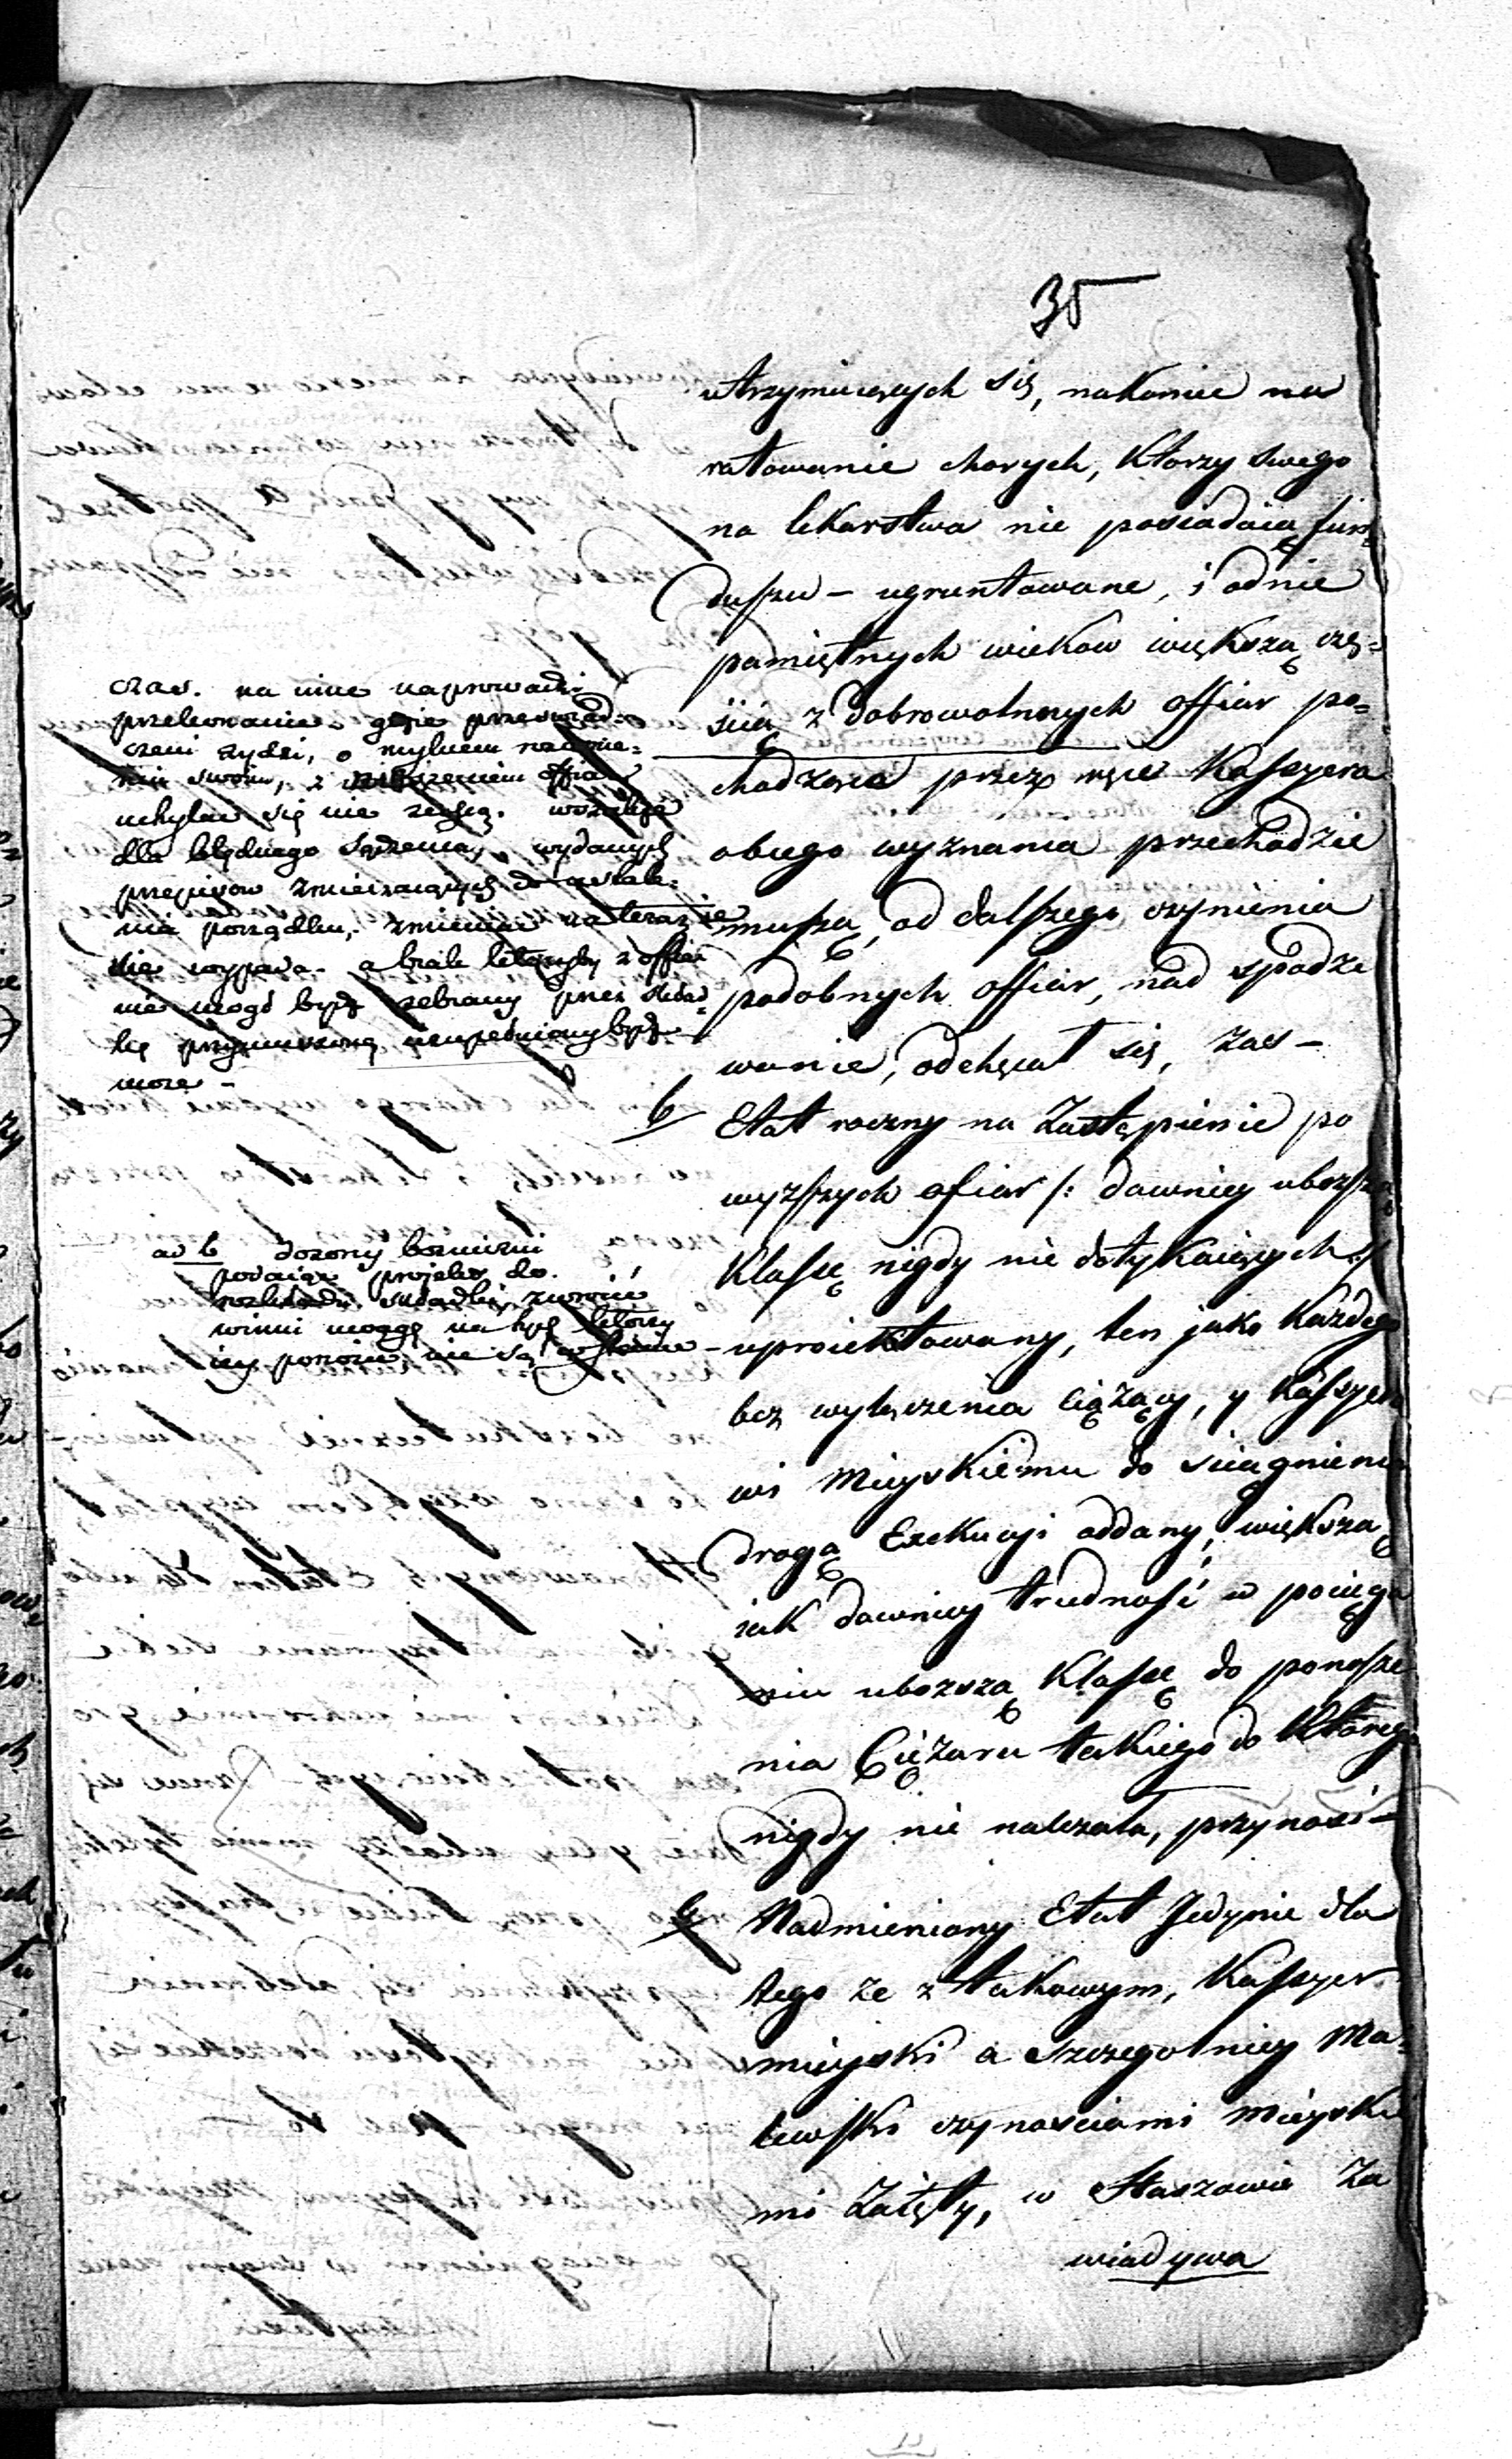 35
utrzymuiących się, nakoniec na
ratowanie chorych, Którzy swego
na lekarstwa nie posiadaią fun-
duszu - ugruntowane, i odnie
pamiętnych wieków większą czę=
ścią z dobrowolnych offiar po=
chodzące przez ręce Kassyera
obcego wyznania przechodzić
muszą, od dalszego czynienia
podobnych offiar, nad spodze
wanie, odchęcał się, zaś -
b Etat roczny na Zastąpienie po
wyższych ofiar /: dawniey uboższą
Klassę nigdy nie dotykaiących :/
uproiektowany, ten jako Każdego
bez wyłączenia ciążący, y Kassyero
wi Mieyskiemu do sciągnienia
drogą Exekucyi oddany, większą
iak dawniey trudność w pociąga
niu uboższą Klassę do ponosze
nia Ciężaru takiego do Którego
nigdy nie należała, przynosi -
c Nadmieniony Etat Jedynie dla
tego że z takowym, Kassyer
mieyski a szczegolniey Ma=
lewski czynnościami mieyski
mi Zaięty, w Staszowie Za
wiadywa
czas. na nine naprowadzi
przekonanie - gdzie przeswiad=
czeni żydzi, o mylnem
swoim, z offiar
uchylać się nie zechcą. wszakże
dla błędnego sądzenia, wydanych
przepisow zmierzaiących do ustale=
nia porządku, zmieniać na teraz nie
wypada - a brak któryby z offiar
nie mogł bydź zebrany przez skład=
kę przymuszoną uzupełniony bydź
może -
ad b dozory bożnicze
podaiąc projekt do
rozkładu składki, zwrócić
winni uwagę na tych którzy
iey ponosić nie są w stanie -